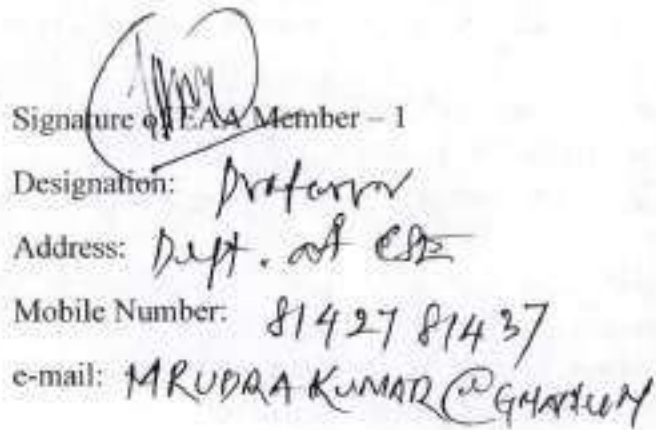 Signature of EAA Member – 1
Designation: Professor
Address: Dept. of CSE
Mobile Number: 81427 81437
e-mail: MRUDRAKUMAR@